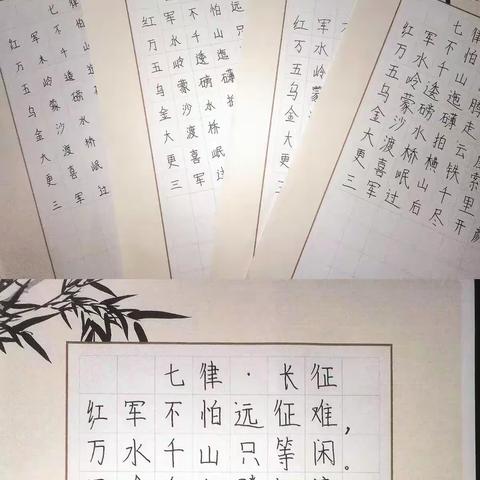 七
红军不怕
万水千山
五岭逶迤
乌蒙磅
金沙水
大渡桥
更喜岷
三军过
七律
红军不怕远
万水千山只
五岭逶迤
乌蒙磅礴
金沙水拍
大渡桥
更喜岷
三军过
红军不
万水
五岭
蒙
七律
红军不怕
万水千山
五岭逶迤腾
乌蒙磅礴走
金沙水拍云
大渡桥横铁索
更喜岷山千里
三军过后尽开颜
七律·长征
红军不怕远征难，
万水千山只等闲。